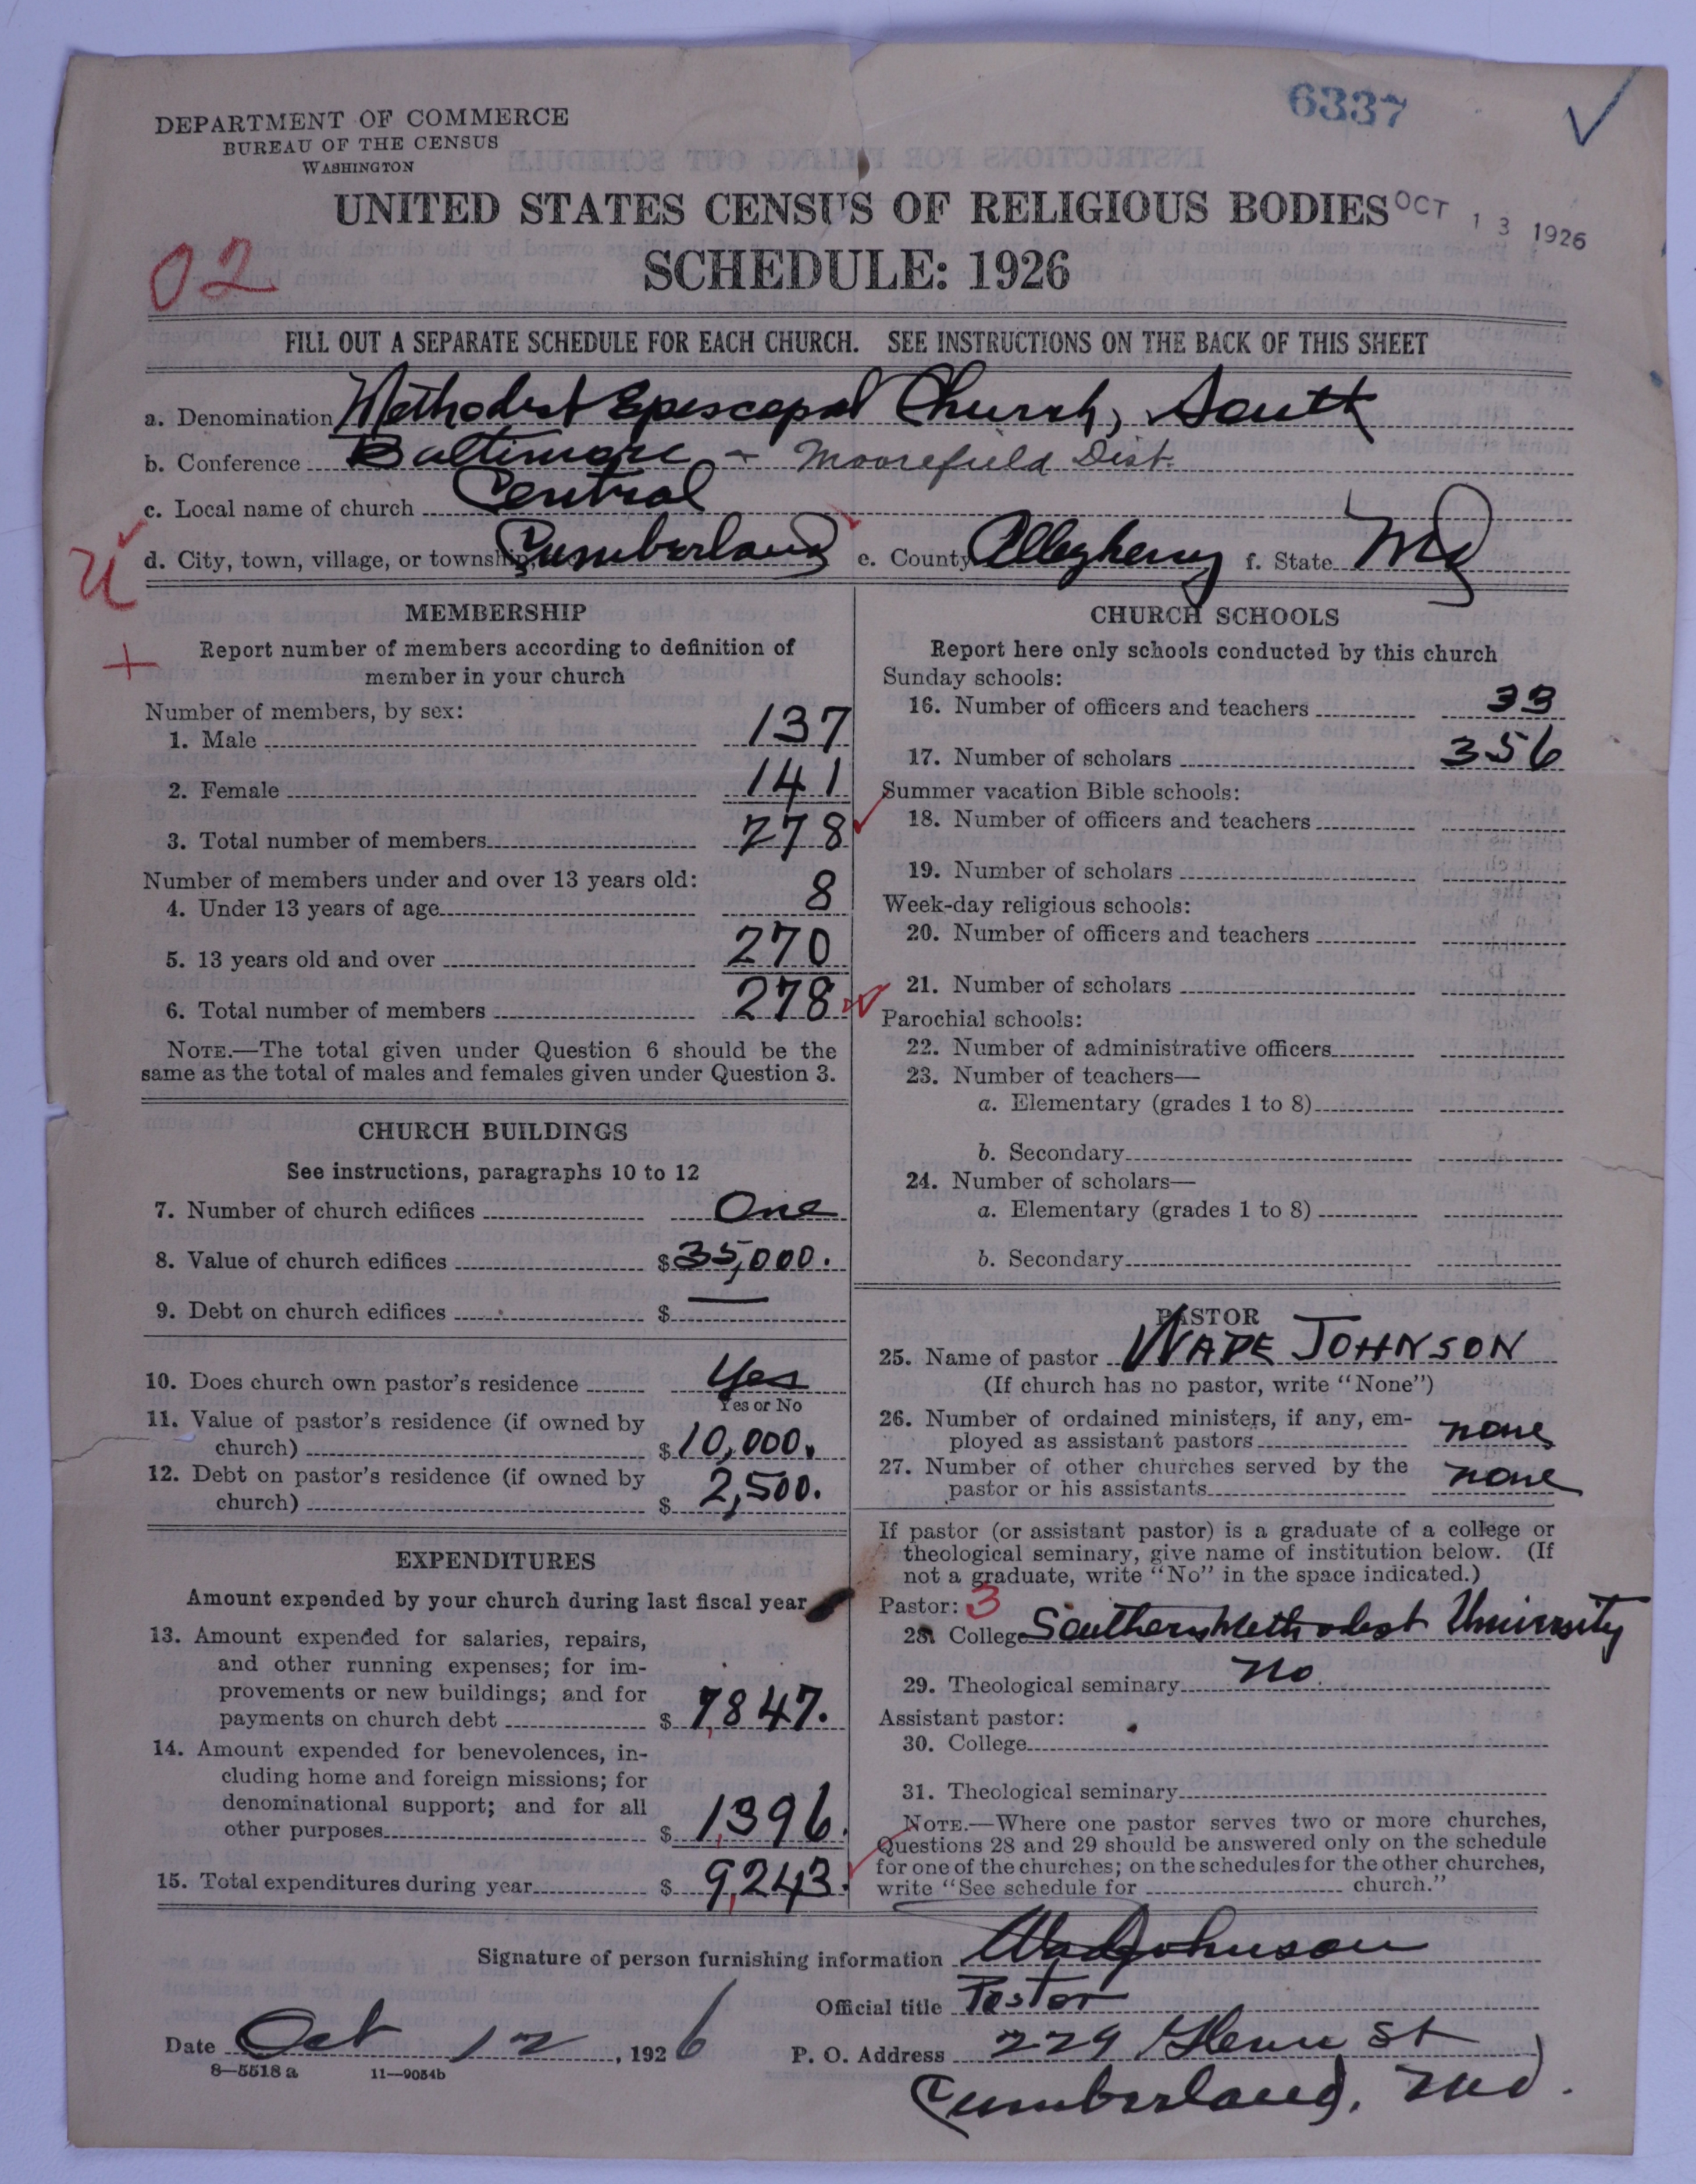 6337
DEPARTMENT OF COMMERCE
BUREAU OF THE CENSUS
WASHINGTON
UNITED STATES CENSUS OF RELIGIOUS BODIES
OCT 13 1926
SCHEDULE: 1926
02
FILL OUT A SEPARATE SCHEDULE FOR EACH CHURCH. SEE INSTRUCTIONS ON THE BACK OF THIS SHEET
a. Denomination Methodist Episcopal Church, South
b. Conference Baltimore - Moorefield Dist.
c. Local name of church Central
d. City, town, village, or township Cumberland e. County Allegheny f. State Md
MEMBERSHIP
Report number of members according to definition of
member in your church
Number of members, by sex:
1. Male 137
2. Female 141
3. Total number of members 278
Number of members under and over 13 years old:
4. Under 13 years of age 8
5. 13 years old and over 270
6. Total number of members 278
NOTE.—The total given under Question 6 should be the
same as the total of males and females given under Question 3.
CHURCH BUILDINGS
See instructions, paragraphs 10 to 12
7. Number of church edifices One
8. Value of church edifices $35,000.
9. Debt on church edifices $ —
10. Does church own pastor's residence Yes
Yes or No
11. Value of pastor's residence (if owned by
church) $10,000.
12. Debt on pastor's residence (if owned by
church) $ 2,500.
EXPENDITURES
Amount expended by your church during last fiscal year
13. Amount expended for salaries, repairs,
and other running expenses; for im-
provements or new buildings; and for
payments on church debt $ 7,847.
14. Amount expended for benevolences, in-
cluding home and foreign missions; for
denominational support; and for all
other purposes $ 1,396.
15. Total expenditures during year $ 9,243.
CHURCH SCHOOLS
Report here only schools conducted by this church
Sunday schools:
16. Number of officers and teachers 33
17. Number of scholars 356
Summer vacation Bible schools:
18. Number of officers and teachers
19. Number of scholars
Week-day religious schools:
20. Number of officers and teachers
21. Number of scholars
Parochial schools:
22. Number of administrative officers
23. Number of teachers—
a. Elementary (grades 1 to 8)
b. Secondary
24. Number of scholars—
a. Elementary (grades 1 to 8)
b. Secondary
PASTOR
25. Name of pastor WADE JOHNSON
(If church has no pastor, write "None")
26. Number of ordained ministers, if any, em-
ployed as assistant pastors none
27. Number of other churches served by the
pastor or his assistants none
If pastor (or assistant pastor) is a graduate of a college or
theological seminary, give name of institution below. (If
not a graduate, write "No" in the space indicated.)
Pastor: 3
28. College Southern Methodist University
29. Theological seminary No.
Assistant pastor:
30. College
31. Theological seminary
NOTE.—Where one pastor serves two or more churches,
Questions 28 and 29 should be answered only on the schedule
for one of the churches; on the schedules for the other churches,
write "See schedule for church."
Signature of person furnishing information Wade Johnson
Official title Pastor
Date Oct 12, 1926 P. O. Address 229 St
8—5518 a 11—9054b
Cumberland, Md.